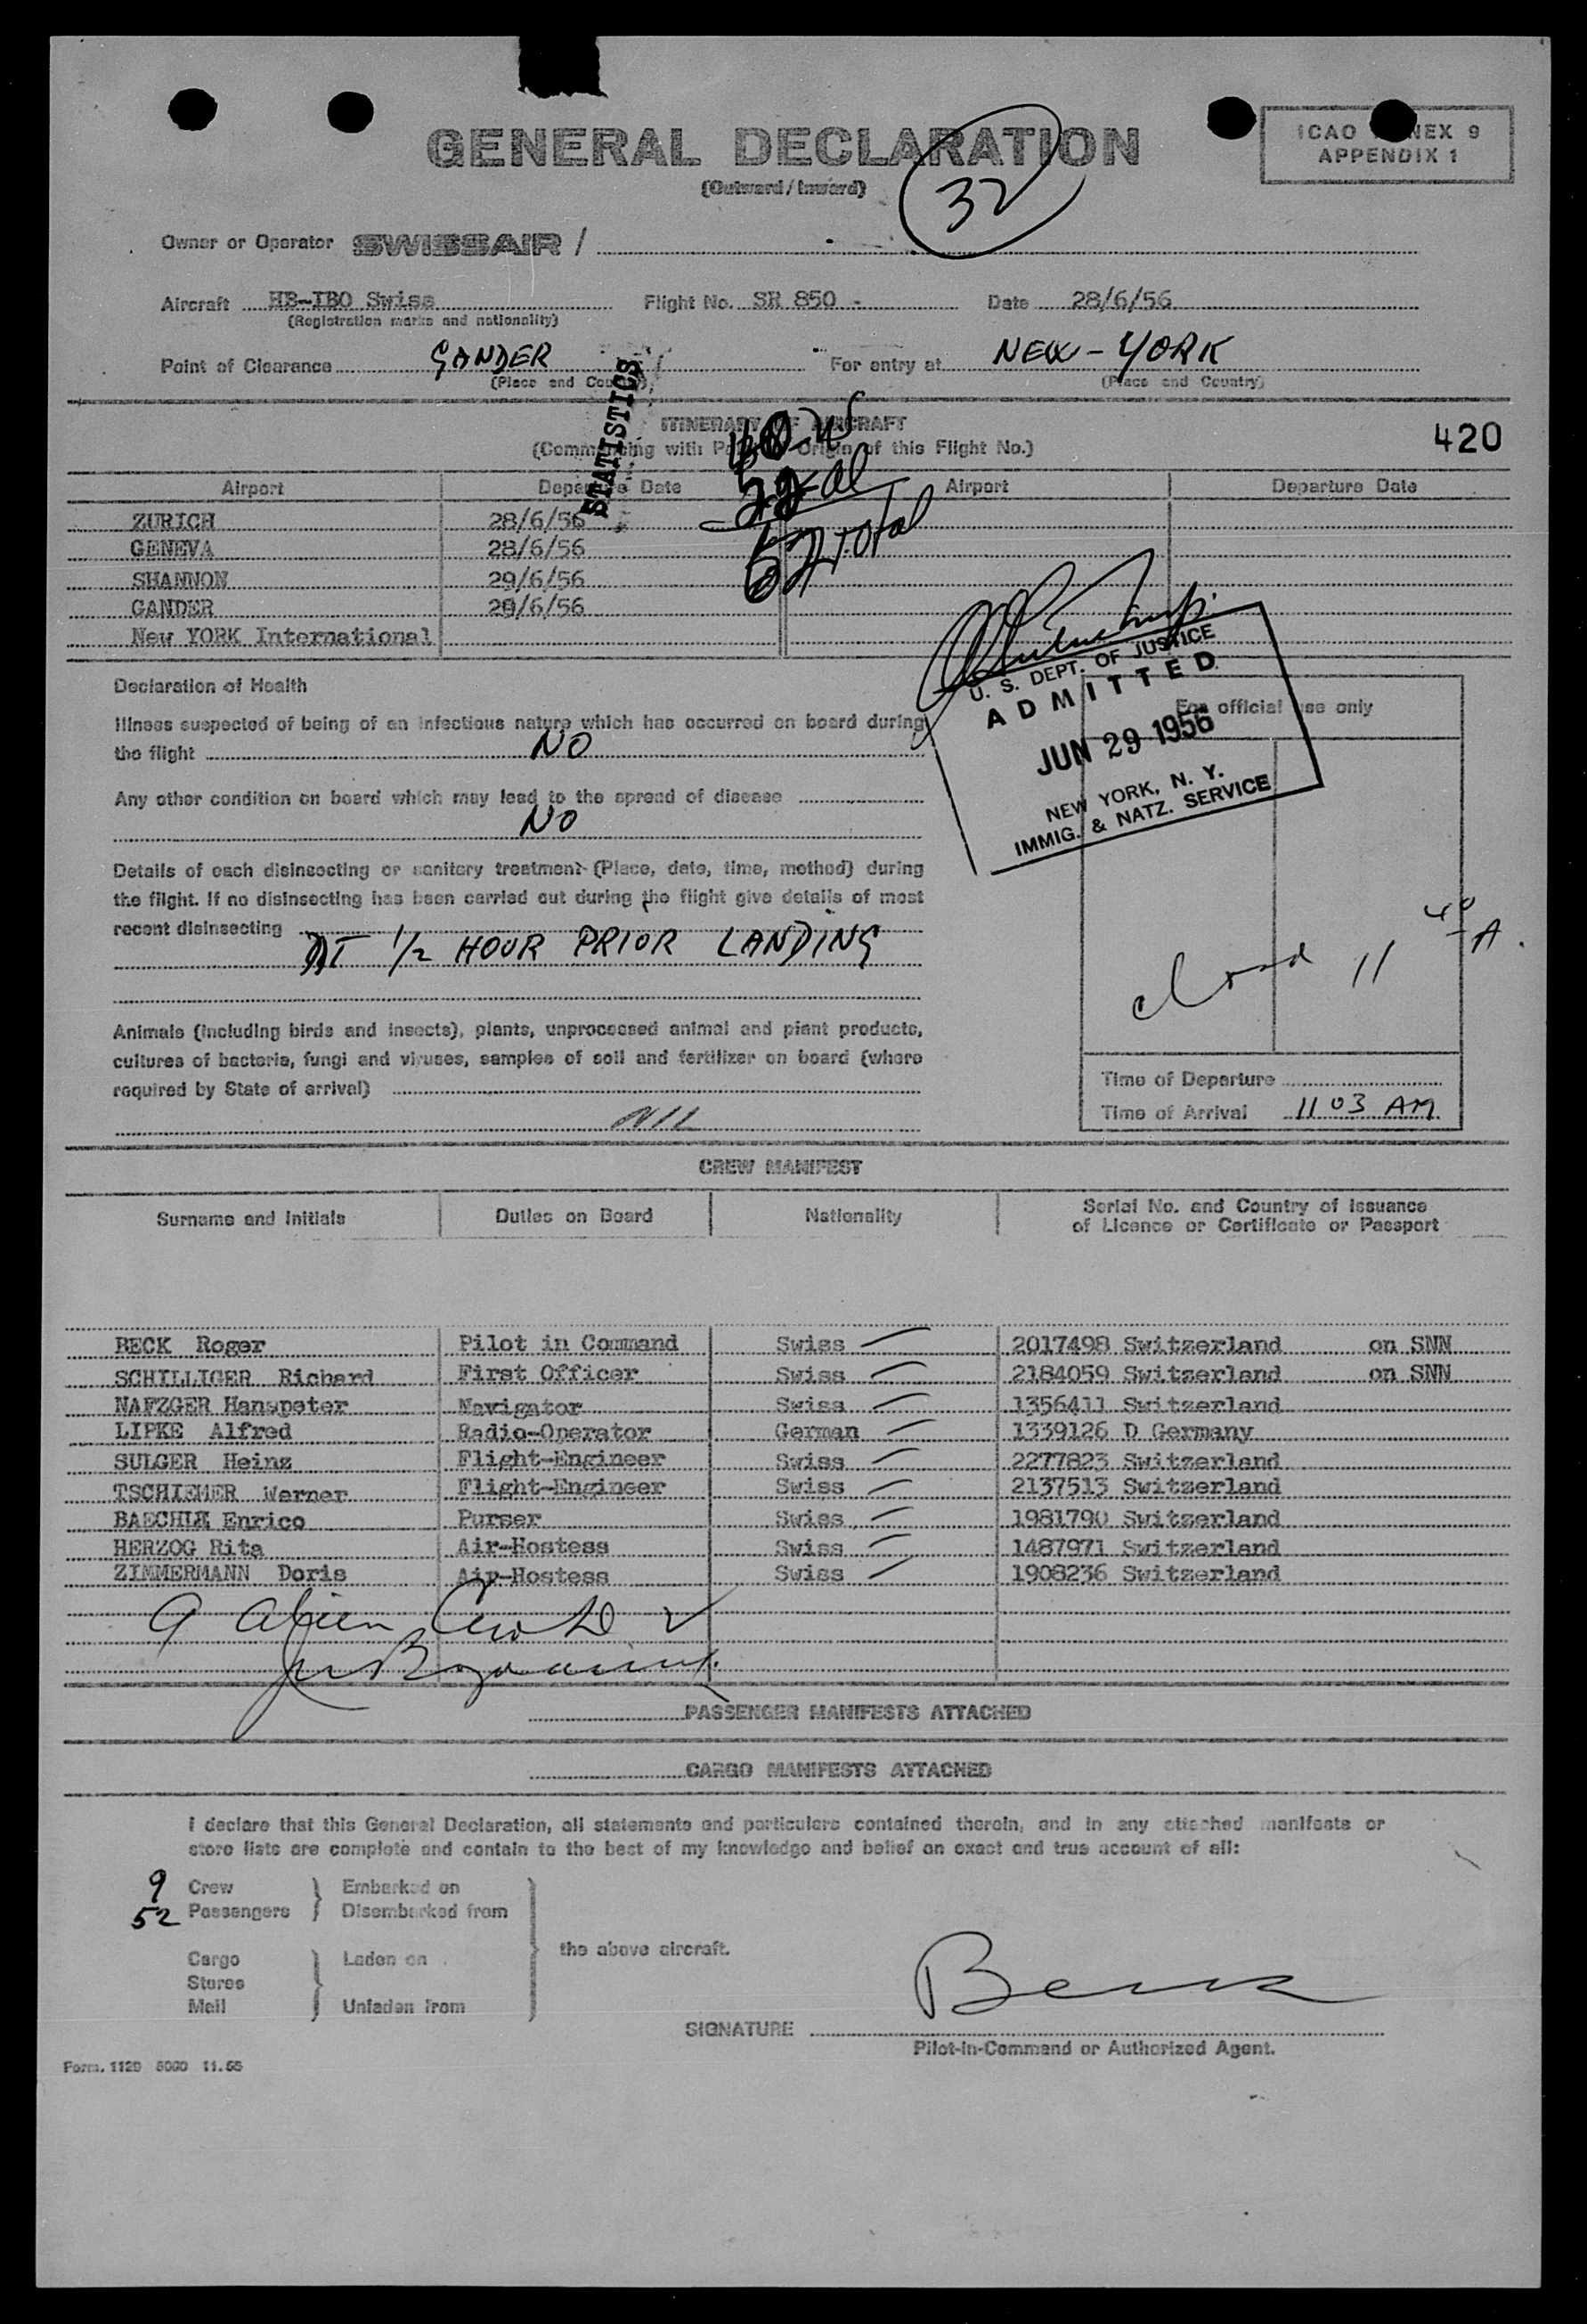 GENERAL DECLARATION
(Outward / Inward)
32
ICAO NEX 9
APPENDIX 1
Owner or Operator SWISSAIR /
Aircraft HB-IBO Swiss Flight No. SR 850 - Date 28/6/56
(Registration marks and nationality)
Point of Clearance GANDER For entry at NEW-YORK
(Place and Country) (Place and Country)
STATISTICS
ITINERARY OF AIRCRAFT
(Commencing with Point of Origin of this Flight No.)
420
Airport Departure Date Airport Departure Date
ZURICH 28/6/56
GENEVA 28/6/56
SHANNON 29/6/56
GANDER 29/6/56
New YORK International
52 total
U. S. DEPT. OF JUSTICE
ADMITTED
JUN 29 1956
NEW YORK, N. Y.
IMMIG. & NATZ. SERVICE
Declaration of Health
For official use only
Illness suspected of being of an infectious nature which has occurred on board during
the flight NO
Any other condition on board which may lead to the spread of disease
NO
Details of each disinsecting or sanitary treatment (Place, date, time, method) during
the flight. If no disinsecting has been carried out during the flight give details of most
recent disinsecting
AT 1/2 HOUR PRIOR LANDING
closed 11 40 A.
Animals (including birds and insects), plants, unprocessed animal and plant products,
cultures of bacteria, fungi and viruses, samples of soil and fertilizer on board (where
required by State of arrival)
NIL
Time of Departure
Time of Arrival 11 03 AM
CREW MANIFEST
Surname and Initials Duties on Board Nationality Serial No. and Country of Issuance
of Licence or Certificate or Passport
BECK Roger Pilot in Command Swiss 2017498 Switzerland on SNN
SCHILLIGER Richard First Officer Swiss 2184059 Switzerland on SNN
NAFZGER Hanspeter Navigator Swiss 1356411 Switzerland
LIPKE Alfred Radio-Operator German 1339126 D Germany
SULGER Heinz Flight-Engineer Swiss 2277823 Switzerland
TSCHIEMER Werner Flight-Engineer Swiss 2137513 Switzerland
BAECHLE Enrico Purser Swiss 1981790 Switzerland
HERZOG Rita Air-Hostess Swiss 1487971 Switzerland
ZIMMERMANN Doris Air-Hostess Swiss 1908236 Switzerland
9 Alien
PASSENGER MANIFESTS ATTACHED
CARGO MANIFESTS ATTACHED
I declare that this General Declaration, all statements and particulars contained therein, and in any attached manifests or
store lists are complete and contain to the best of my knowledge and belief an exact and true account of all:
9 Crew Embarked on
52 Passengers Disembarked from
the above aircraft.
Cargo Laden on
Stores
Mail Unladen from
SIGNATURE Beck
Pilot-in-Command or Authorized Agent.
Form. 1120 5000 11.55